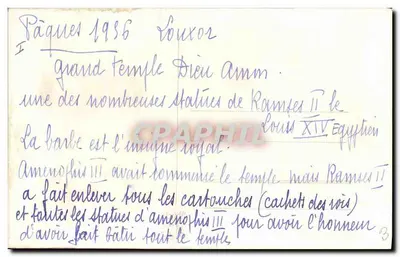 Pâques 1936 Louxor
I
grand temple Dieu Amon.
une des nombreuses statues de Ramses II le
Louis XIV Egyptien
La barbe est l'insigne royal.
Amenophis III avait commencé le temple mais Ramses II
a fait enlever tous les cartouches (cachets des rois)
et toutes les statues d'amenophis III pour avoir l'honneur
d'avoir fait bâtir tout le temple
3